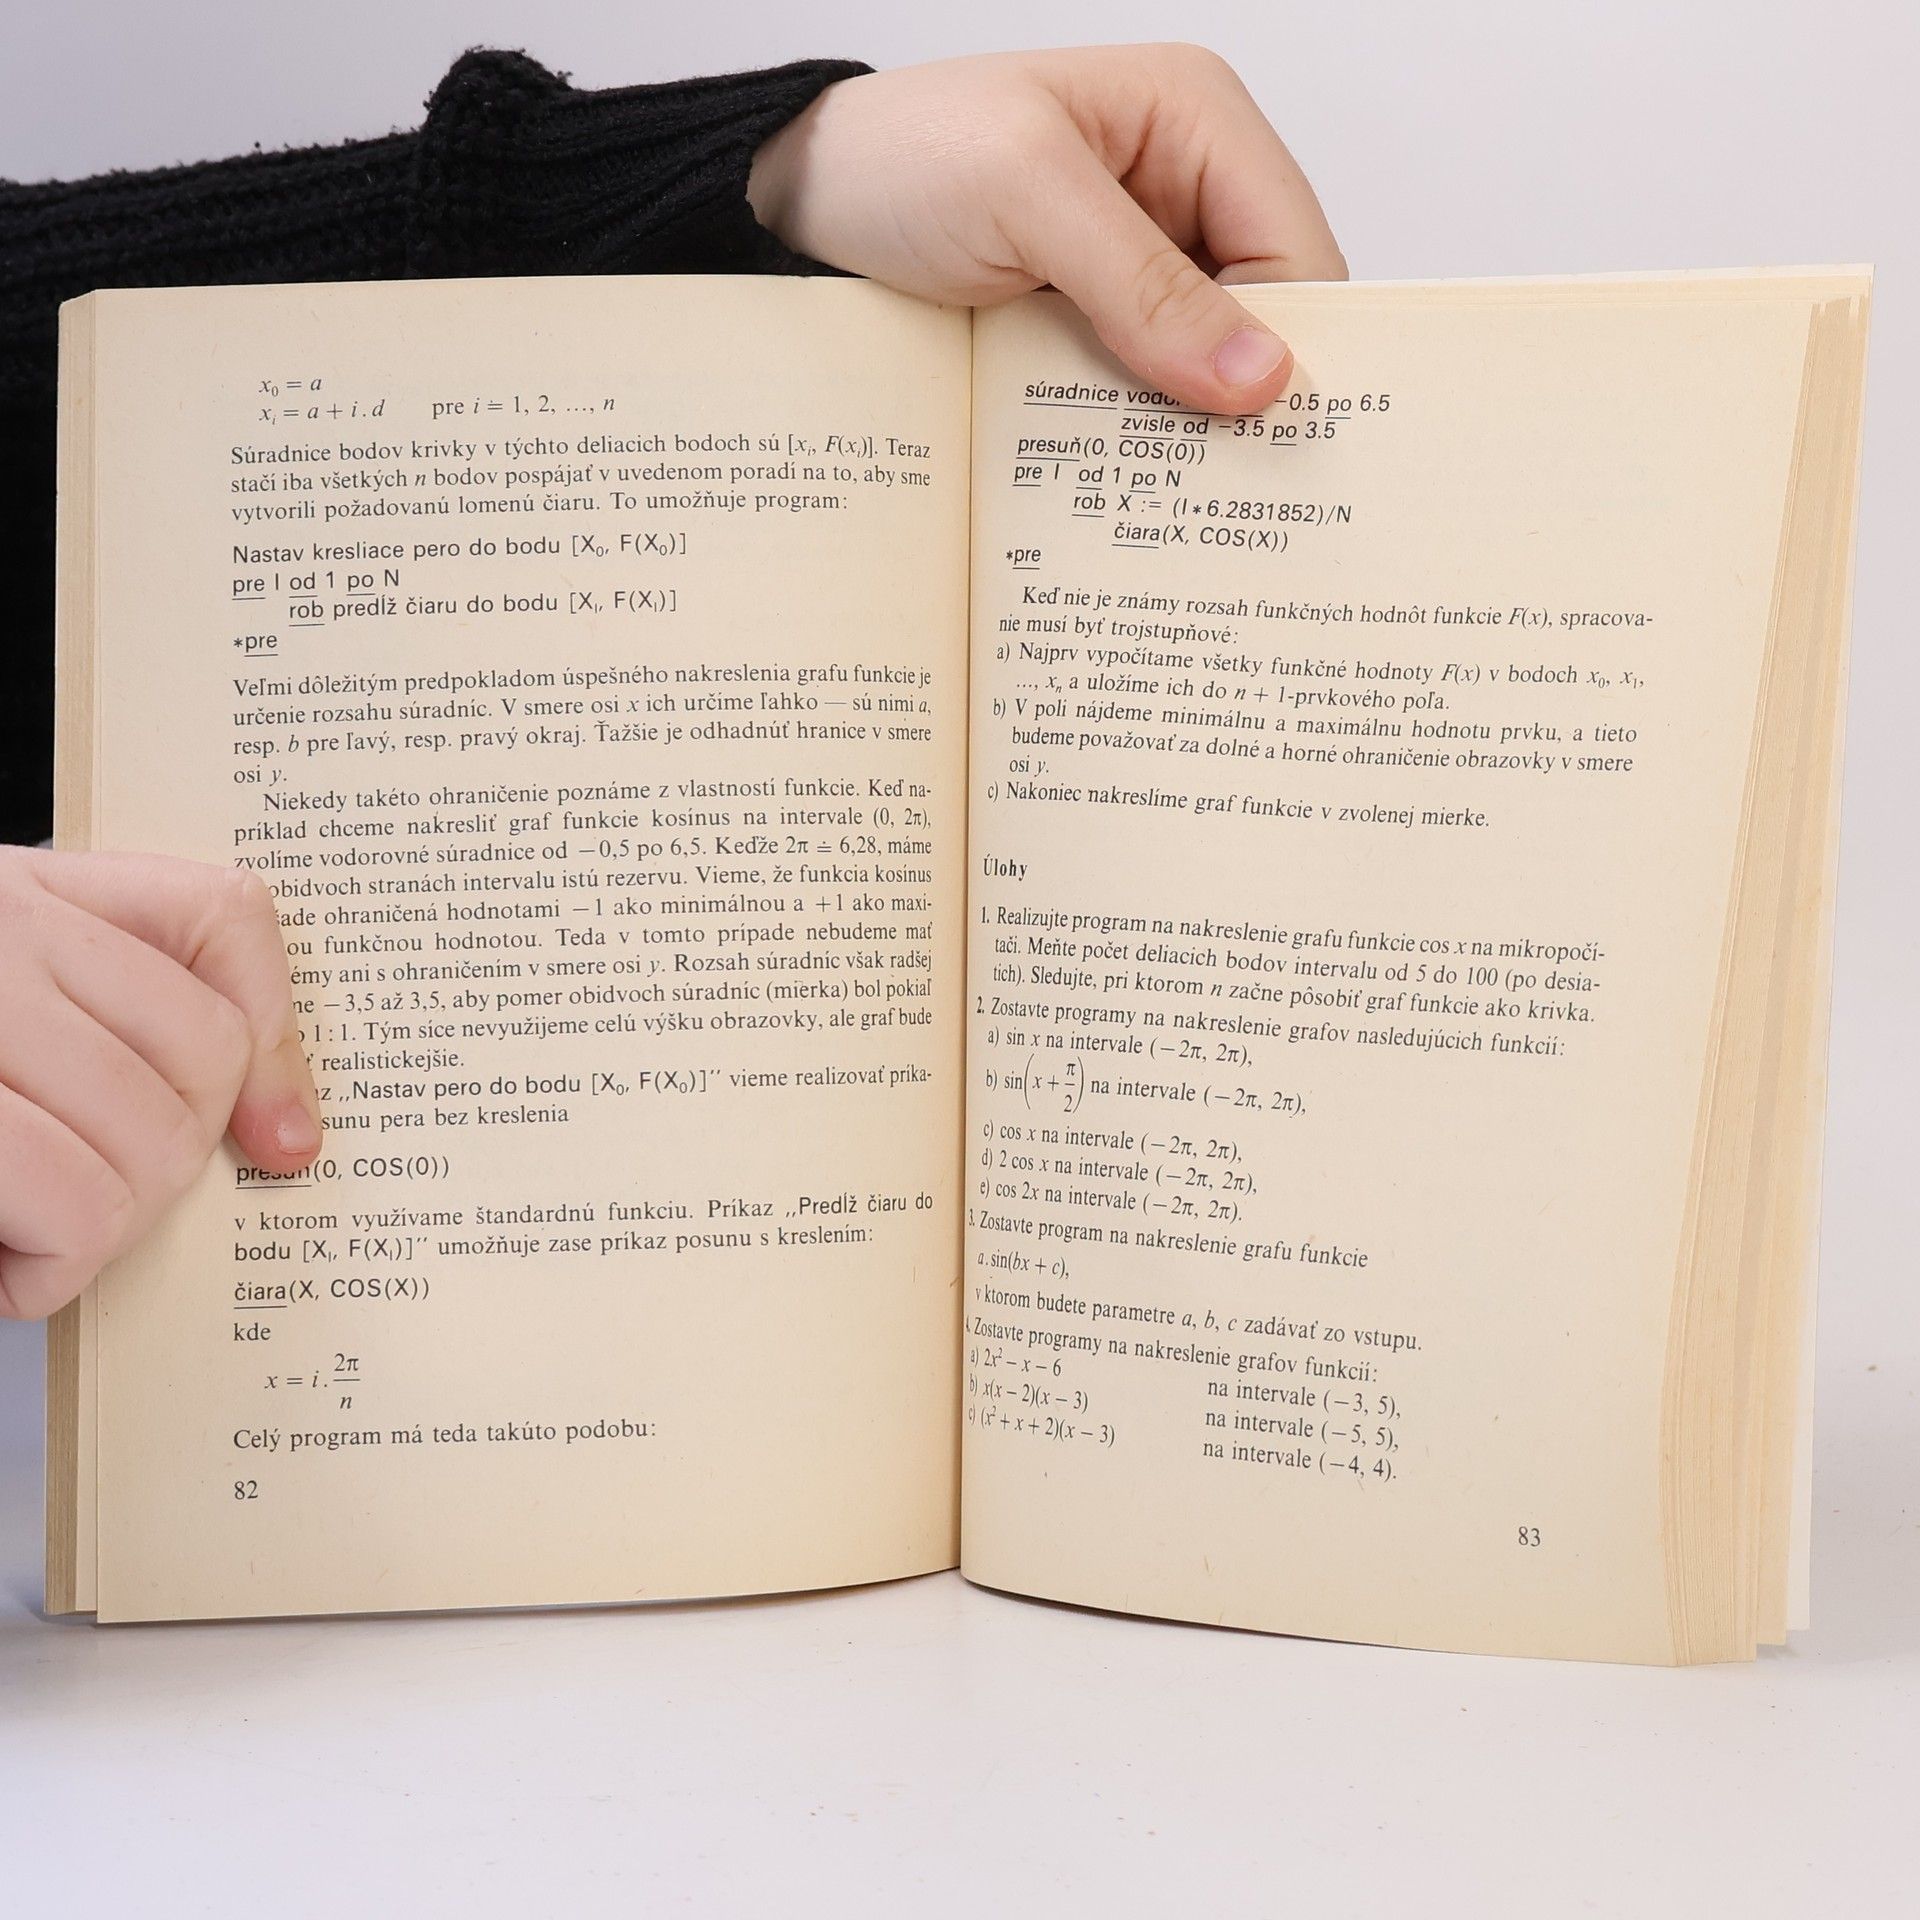 x₀ = a
xᵢ = a + i.d pre i = 1, 2, ..., n
Súradnice bodov krivky v týchto deliacich bodoch sú [xᵢ, F(xᵢ)]. Teraz
stačí iba všetkých n bodov pospájať v uvedenom poradí na to, aby sme
vytvorili požadovanú lomenú čiaru. To umožňuje program:
Nastav kresliace pero do bodu [X₀, F(X₀)]
pre I od 1 po N
rob predĺž čiaru do bodu [Xᵢ, F(Xᵢ)]
*pre
Veľmi dôležitým predpokladom úspešného nakreslenia grafu funkcie je
určenie rozsahu súradníc. V smere osi x ich určíme ľahko — sú nimi a,
resp. b pre ľavý, resp. pravý okraj. Ťažšie je odhadnúť hranice v smere
osi y.
Niekedy takéto ohraničenie poznáme z vlastností funkcie. Keď na-
príklad chceme nakresliť graf funkcie kosínus na intervale (0, 2π),
zvolíme vodorovné súradnice od −0,5 po 6,5. Keďže 2π ≐ 6,28, máme
obidvoch stranách intervalu istú rezervu. Vieme, že funkcia kosínus
ohraničená hodnotami −1 ako minimálnou a +1 ako maxi-
funkčnou hodnotou. Teda v tomto prípade nebudeme mať
ani s ohraničením v smere osi y. Rozsah súradníc však radšej
−3,5 až 3,5, aby pomer obidvoch súradníc (mierka) bol pokiaľ
1 : 1. Tým síce nevyužijeme celú výšku obrazovky, ale graf bude
realistickejšie.
„Nastav pero do bodu [X₀, F(X₀)]" vieme realizovať príka-
pera bez kreslenia
presuň(0, COS(0))
v ktorom využívame štandardnú funkciu. Príkaz „Predĺž čiaru do
bodu [Xᵢ, F(Xᵢ)]" umožňuje zase príkaz posunu s kreslením:
čiara(X, COS(X))
kde
x = i. 2π/n
Celý program má teda takúto podobu:
82
súradnice −0.5 po 6.5
zvisle od −3.5 po 3.5
presuň(0, COS(0))
pre I od 1 po N
rob X := (I*6.2831852)/N
čiara(X, COS(X))
*pre
Keď nie je známy rozsah funkčných hodnôt funkcie F(x), spracova-
nie musí byť trojstupňové:
a) Najprv vypočítame všetky funkčné hodnoty F(x) v bodoch x₀, x₁,
..., xₙ a uložíme ich do n + 1-prvkového poľa.
b) V poli nájdeme minimálnu a maximálnu hodnotu prvku, a tieto
budeme považovať za dolné a horné ohraničenie obrazovky v smere
osi y.
c) Nakoniec nakreslíme graf funkcie v zvolenej mierke.
Úlohy
1. Realizujte program na nakreslenie grafu funkcie cos x na mikropočí-
tači. Meňte počet deliacich bodov intervalu od 5 do 100 (po desia-
tich). Sledujte, pri ktorom n začne pôsobiť graf funkcie ako krivka.
2. Zostavte programy na nakreslenie grafov nasledujúcich funkcií:
a) sin x na intervale (−2π, 2π),
b) sin(x + π/2) na intervale (−2π, 2π),
c) cos x na intervale (−2π, 2π),
d) 2 cos x na intervale (−2π, 2π),
e) cos 2x na intervale (−2π, 2π).
3. Zostavte program na nakreslenie grafu funkcie
a.sin(bx + c),
v ktorom budete parametre a, b, c zadávať zo vstupu.
4. Zostavte programy na nakreslenie grafov funkcií:
a) 2x² − x − 6 na intervale (−3, 5),
b) x(x − 2)(x − 3) na intervale (−5, 5),
c) (x² + x + 2)(x − 3) na intervale (−4, 4).
83